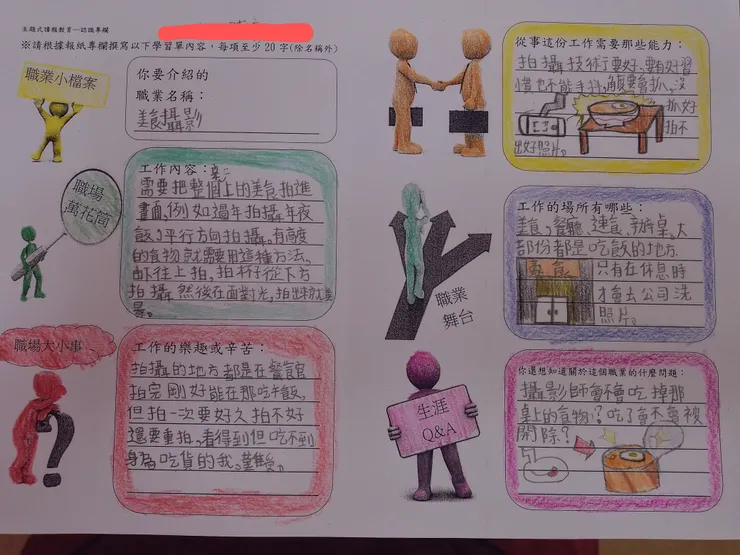 主題式讀報教育──認識專欄
※請根據報紙專欄撰寫以下學習單內容，每項至少20字(除名稱外)
職業小檔案
你要介紹的
職業名稱：
美食攝影
職場
萬花筒
工作內容：
需要把整個上的美食拍進
畫面，例如過年拍攝年夜
飯，平行方向拍攝。有高度
的食物就需要用這種方法。
由下往上拍，拍杯子從下方
拍攝，然後在面對光，拍出來就美
職場大小事
工作的樂趣或辛苦：
拍攝的地方都是在餐館
拍完剛好能在那吃午飯，
但拍一次要好久拍不好
還要重拍，看得到但吃不到
身為吃貨的我，難受。
從事這份工作需要那些能力：
拍攝技術行要好，要有好習
慣也不能手抖，角度要會抓，沒
抓好
拍不
出好照片。
職業
舞台
工作的場所有哪些：
美食、餐廳、速食、辦桌，大
部份都是吃飯的地方
美食
只有在休息時
才會去公司洗
照片。
生涯
Q&A
你還想知道關於這個職業的什麼問題：
攝影師會不會吃掉那
桌上的食物？吃了會不會被
開除？